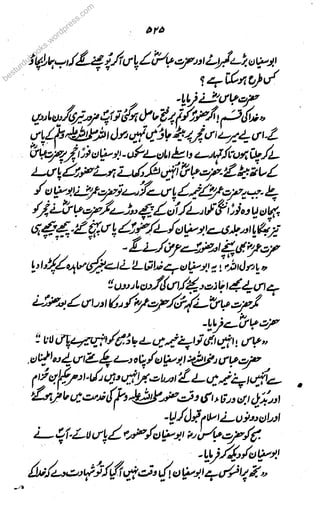 ۵۲۵
besturdubooks.wordpress.com
ابوسفیان بڑے گھبرائے اور حضرت عباسؓ کے پاس آکر پوچھنے لگے کہ اب ہمارا بچاؤ
کس طرح ہوسکتا ہے؟
حضرت عباسؓ نے فرمایا۔
«خدا کی قسم! اگر حضورؐ کو تم پر فتح حاصل ہوگئی تو آپؐ ضرور تیری گردن مار دیں
گے۔ اس لیے میرے اس خچر پر بیٹھ جاؤ میں تمہیں رسول اللہ صلی اللہ علیہ وسلم کے پاس
لے کر چلتا ہوں تاکہ تمہارے واسطے امان لے سکوں۔ ابوسفیان فوراً خچر پر حضرت عباسؓ
کے ساتھ بیٹھ گئے۔ حضرت عباسؓ انہیں لشکر دکھاتے ہوئے حضورؐ کے پاس لے
چلے۔ جب یہ حضرت عمرؓ کے خیمہ کے پاس سے گزرے تو حضرت عمرؓ نے ابوسفیان کو
پہچان لیا وہ فوراً ننگی تلوار لے کر ان کے پیچھے دوڑے مگر حضرت عباسؓ نے خچر کو
تیز بھگایا اور جلدی سے ابوسفیان کو لے کر حضورؐ کے پاس پہنچ گئے۔ پیچھے پیچھے ہی
حضرت عمرؓ بھی پہنچے اور حضورؐ سے عرض کرنے لگے۔
«یا رسول اللہؐ! یہ ابوسفیان ہے خدا تعالٰی نے اسے بغیر کسی معاہدہ کے پکڑوا دیا
ہے اس لیے مجھے اجازت دیجئے کہ اس کی گردن مار دوں»
مگر حضرت عباسؓ نے کہہ سن کر حضرت عمرؓ کو روکا اور اس کے بعد حضورؐ نے
حضرت عباسؓ سے فرمایا۔
«عباس! انہیں ابھی تو اپنے خیمہ میں لے جاؤ صبح کو انہیں میرے پاس لانا»
حضرت عباس رضی اللہ عنہ ابوسفیان کو پناہ دے چکے تھے اس لیے وہ اطمینان
سے انہیں اپنے خیمہ میں لے گئے اور رات بھر انہیں وہیں رکھا۔ ادھر حکیم ابن حزام
اور بدیل ابن ورقاء اسی وقت حضور صلی اللہ علیہ وسلم کی خدمت میں حاضر ہوگئے
اور ان دونوں نے اسلام قبول کرلیا۔
صبح کو حضرت عباس رضؓ ابوسفیان کو حضورؐ کے پاس لائے۔ آپؐ نے
ابوسفیان کو دیکھ کر فرمایا۔
«تجھ پر افسوس ہے ابوسفیان! کیا وقت نہیں آگیا کہ تو شہادت دے کہ خدا کے